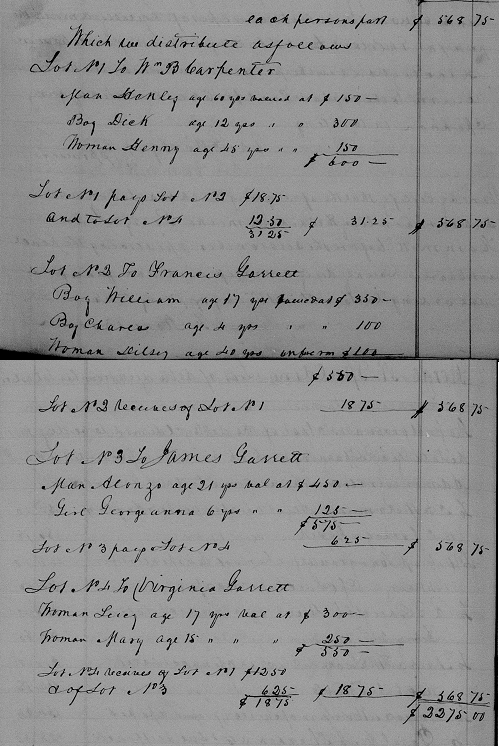 each persons part $ 568 75
Which we distribute as follows
Lot No 1 To Wm B Carpenter
Man Stanley age 60 yrs valued at $ 150 —
Boy Dick age 12 yrs " " 300
Woman Henny age 45 yrs " " 150
$ 600 —
Lot No 1 pays Lot No 2 $18.75
and to Lot No 4 12.50 $ 31.25 $ 568 75
31 25
Lot No 2 To Francis Garrett
Boy William age 17 yrs valued at $ 350 —
Boy Charles age 4 yrs " " 100
Woman age 40 yrs $100
$ 550 —
Lot No 2 receives of Lot No 1 18 75 $ 568 75
Lot No 3 To James Garrett
Man Alonzo age 21 yrs val at $ 450 —
Girl Georgeanna 6 yrs " " 125 —
$ 575 —
Lot No 3 pays Lot No 4 6 25 $ 568 75
Lot No 4 To Virginia Garrett
Woman Lucy age 17 yrs val at $ 300 —
Woman Mary age 15 " " " 250 —
$ 550 —
Lot No 4 receives of Lot No 1 $12 50
& of Lot No 3 6 25 $ 18 75 $ 568 75
$ 18 75 $ 2275 00